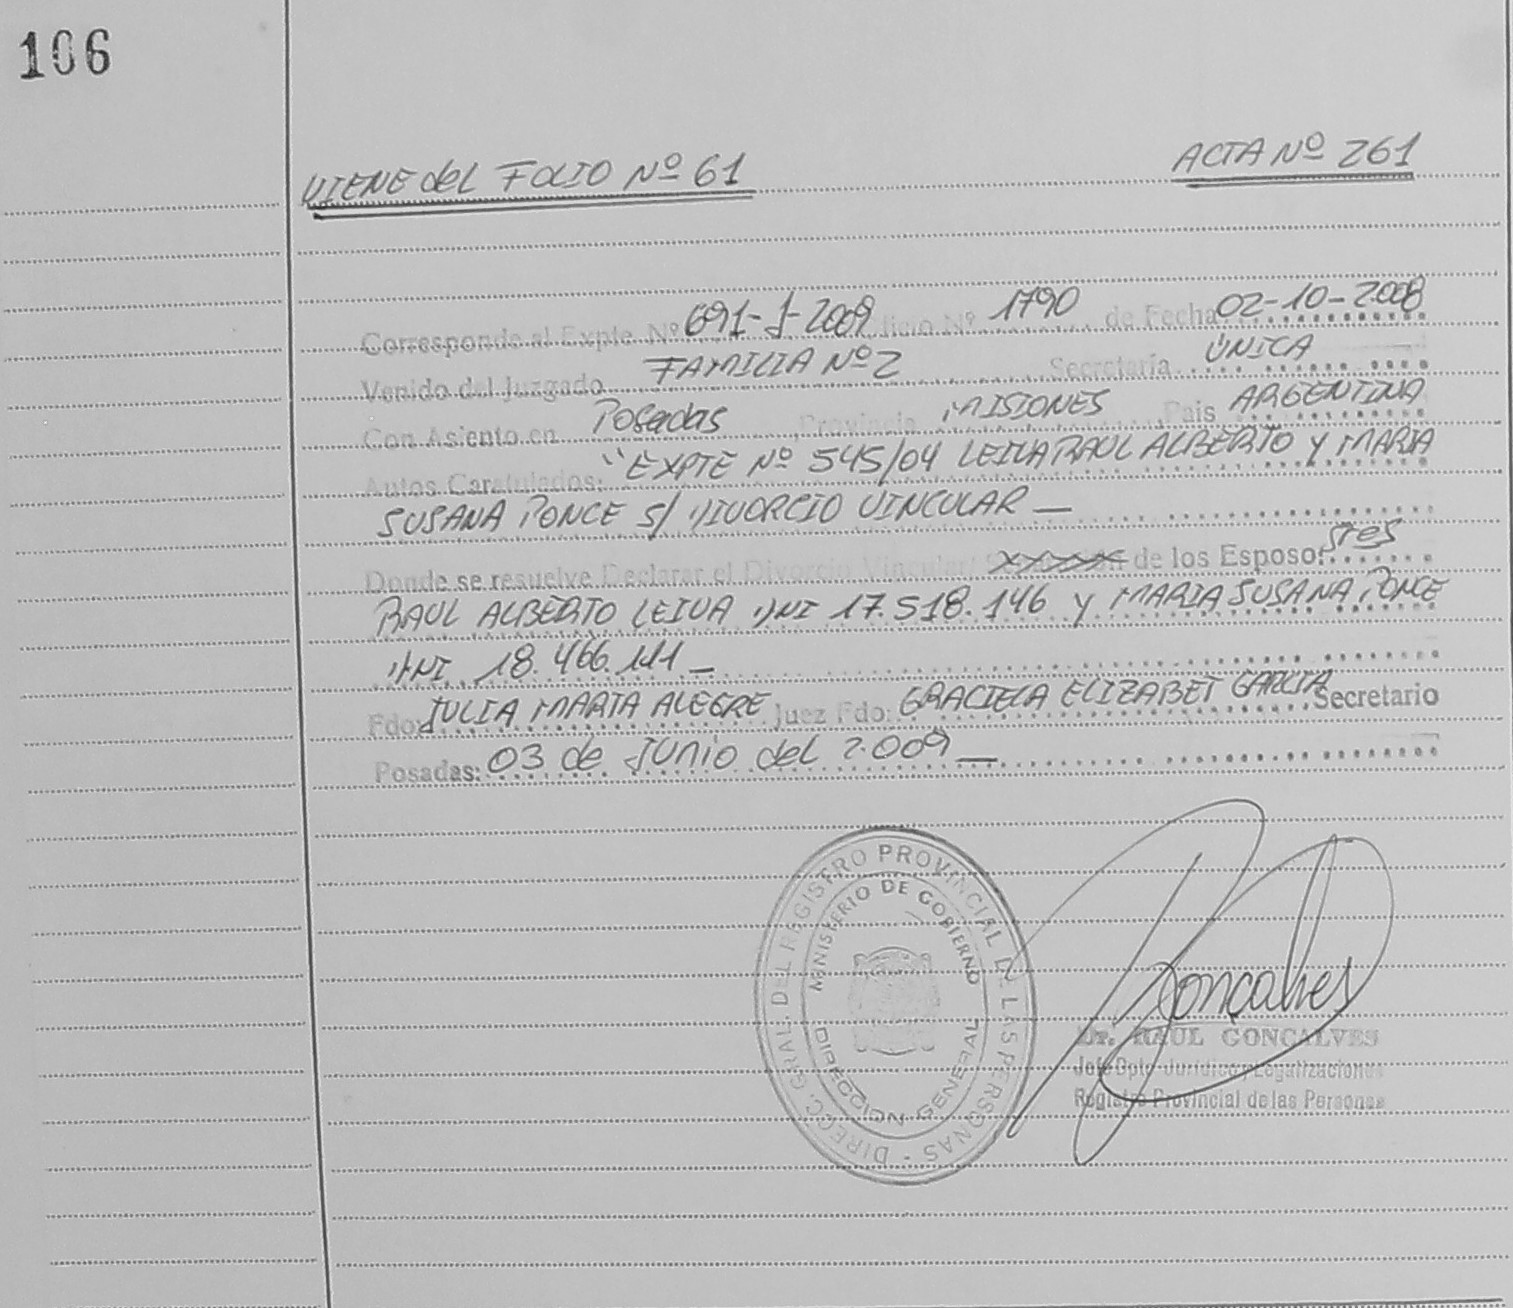 106
VIENE del FOLIO Nº 61
ACTA Nº 261
Corresponde al Expte Nº 691-J-2009 ficio Nº 1790 de Fecha 02-10-2.008
Venido del Juzgado FAMILIA Nº 2 Secretaría ÚNICA
Con Asiento en Posadas, Provincia MISIONES País ARGENTINA
Autos Caratulados: "EXPTE Nº 545/04 LEIVA RAUL ALBERTO Y MARIA
SUSANA PONCE S/ DIVORCIO VINCULAR —
Donde se resuelve Declarar el Divorcio Vincular/ xxxxx de los Esposo: sres
RAUL ALBERTO LEIVA DNI 17.518.146 y MARIA SUSANA PONCE
DNI 18.466.111 —
Fdo: JULIA MARIA ALEGRE Juez Fdo: GRACIELA ELIZABET GARCIA Secretario
Posadas: 03 de JUNIO del 2.009 —
DIRECC. GRAL. DEL REGISTRO PROVINCIAL DE LAS PERSONAS -
MINISTERIO DE GOBIERNO
DIRECCION GENERAL
Gonçalves
Dr. RAUL GONCALVES
Jefe Dpto Jurídico y Legalizaciones
Registro Provincial de las Personas